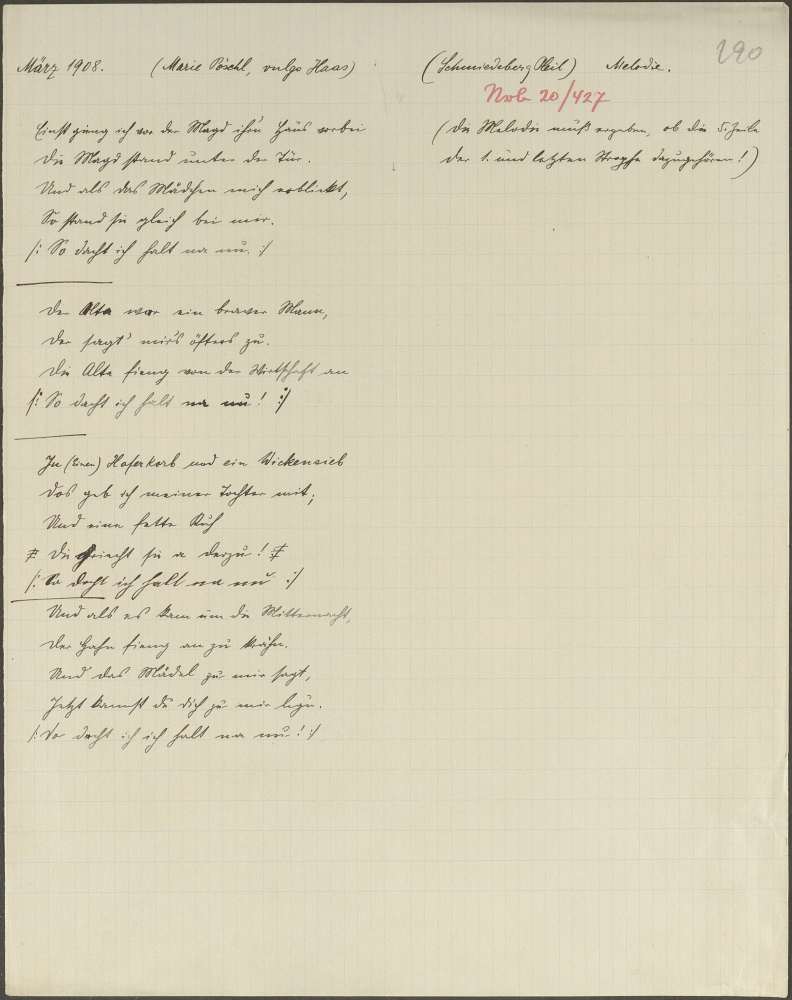 290
März 1908. (Marie Pöschl, vulgo Haas) (Schmiedeberg Pleil) Melodie.
Nob 20/427
(Die Melodie muß ergeben, ob die 5. Zeile
der 1. und letzten Strophe dazugehören!)
Einst gieng ich vor der Magd ihrn Haus vorbei
Die Magd stand unter der Tür.
Und als das Mädchen mich erblickt,
So stand sie gleich bei mir.
/: So dacht ich halt na nu. :/
Der Alte war ein braver Mann,
Der sagt' mirs öfters zu.
Die Alte fieng von der Wirtschaft an
/: So dacht ich halt na nu! :/
Haferkorb und ein Wickensieb
Das geb ich meiner Tochter mit;
Und eine fette Kuh
Die kriecht sie a derzu!
/: So docht ich halt na nu :/
Und als es kam um die Mitternacht,
Der Hahn fieng an zu krähn.
Und das Mädel zu mir sagt,
Jetzt kannst du dich zu mir legn.
/: So docht ich ich halt na nu! :/